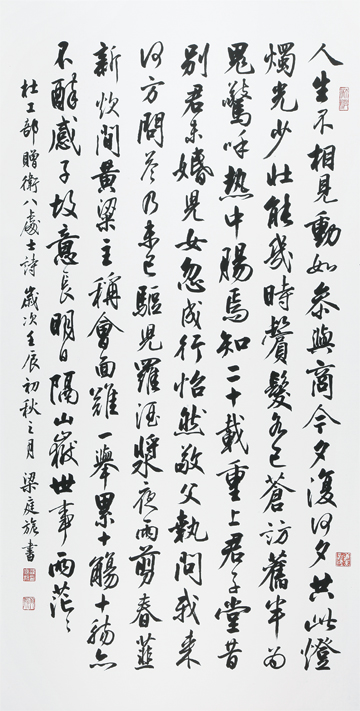 人生不相見動如參與商今夕復何夕共此燈
燭光少壯能幾時鬢髮各已蒼訪舊半為
鬼驚呼熱中腸焉知二十載重上君子堂昔
別君未婚兒女忽成行怡然敬父執問我來
何方問答乃未已驅兒羅酒漿夜雨剪春韮
新炊間黃粱主稱會面難一舉累十觴十觴亦
不醉感子故意長明日隔山嶽世事兩茫々
杜工部贈衛八處士詩 歲次壬辰初秋之月 梁庭書